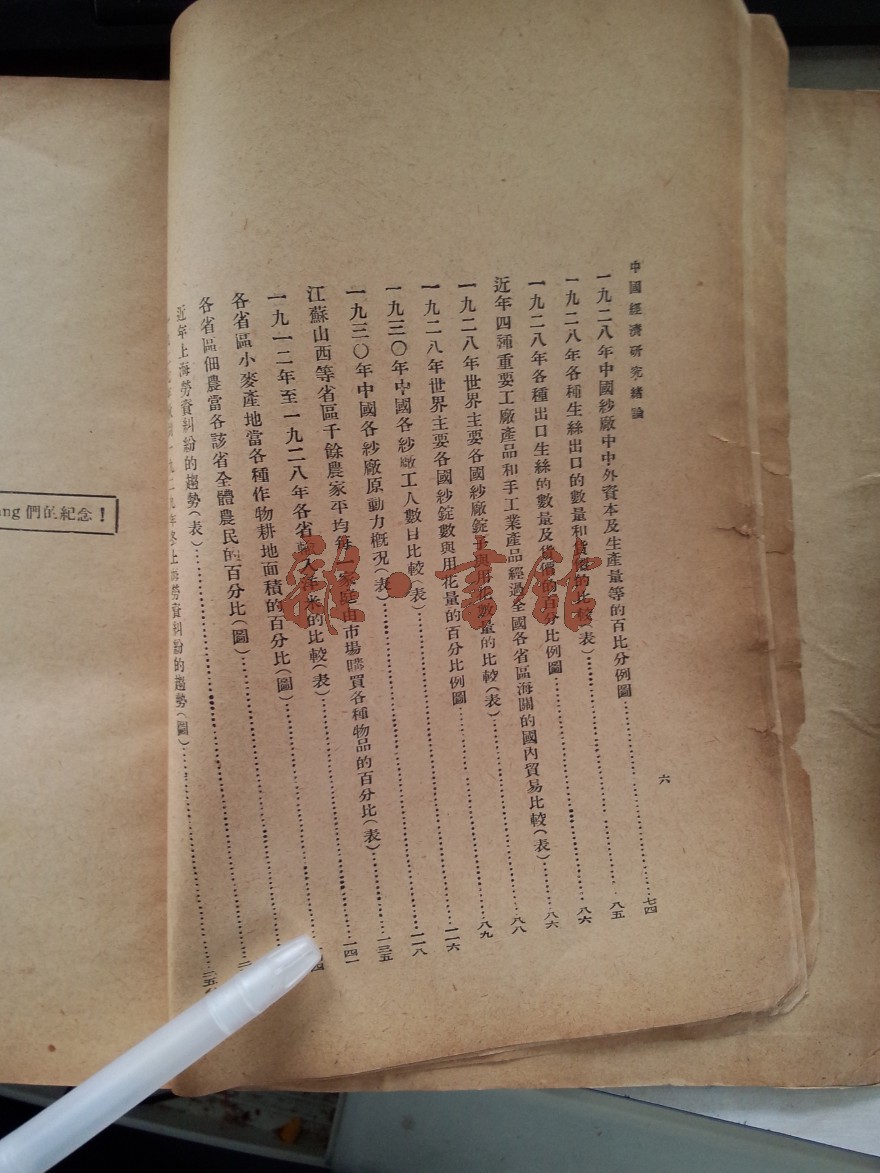 中國經濟研究緒論
六
一九二八年中國紗廠中中外資本及生產量等的百比分例圖……七四
一九二八年各種生絲出口的數量和貨價的比較(表)……八五
一九二八年各種出口生絲的數量及貨價的百分比例圖……八六
近年四種重要工廠產品和手工業產品經過全國各省區海關的國內貿易比較(表)……八六
一九二八年世界主要各國紗廠錠子與用花數量的比較(表)……八八
一九二八年世界主要各國紗錠數與用花量的百分比例圖……八九
一九三〇年中國各紗廠工人數目比較(表)……一一六
一九三〇年中國各紗廠原動力概況(表)……一一八
江蘇山西等省區千餘農家平均每一家庭由市場購買各種物品的百分比(表)……一三五
一九一二年至一九二八年各省輸入洋米的比較(表)……一四一
各省區小麥產地當各種作物耕地面積的百分比(圖)……四
各省區佃農當各該省全體農民的百分比(圖)……
近年上海勞資糾紛的趨勢(表)……
年終上海勞資糾紛的趨勢(圖)……二五
ang們的紀念!
雜·書館